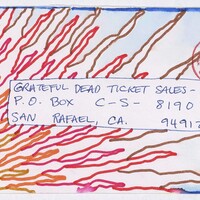 GRATEFUL DEAD TICKET SALES-
P.O. BOX C-S- 8190
SAN RAFAEL, CA. 94912